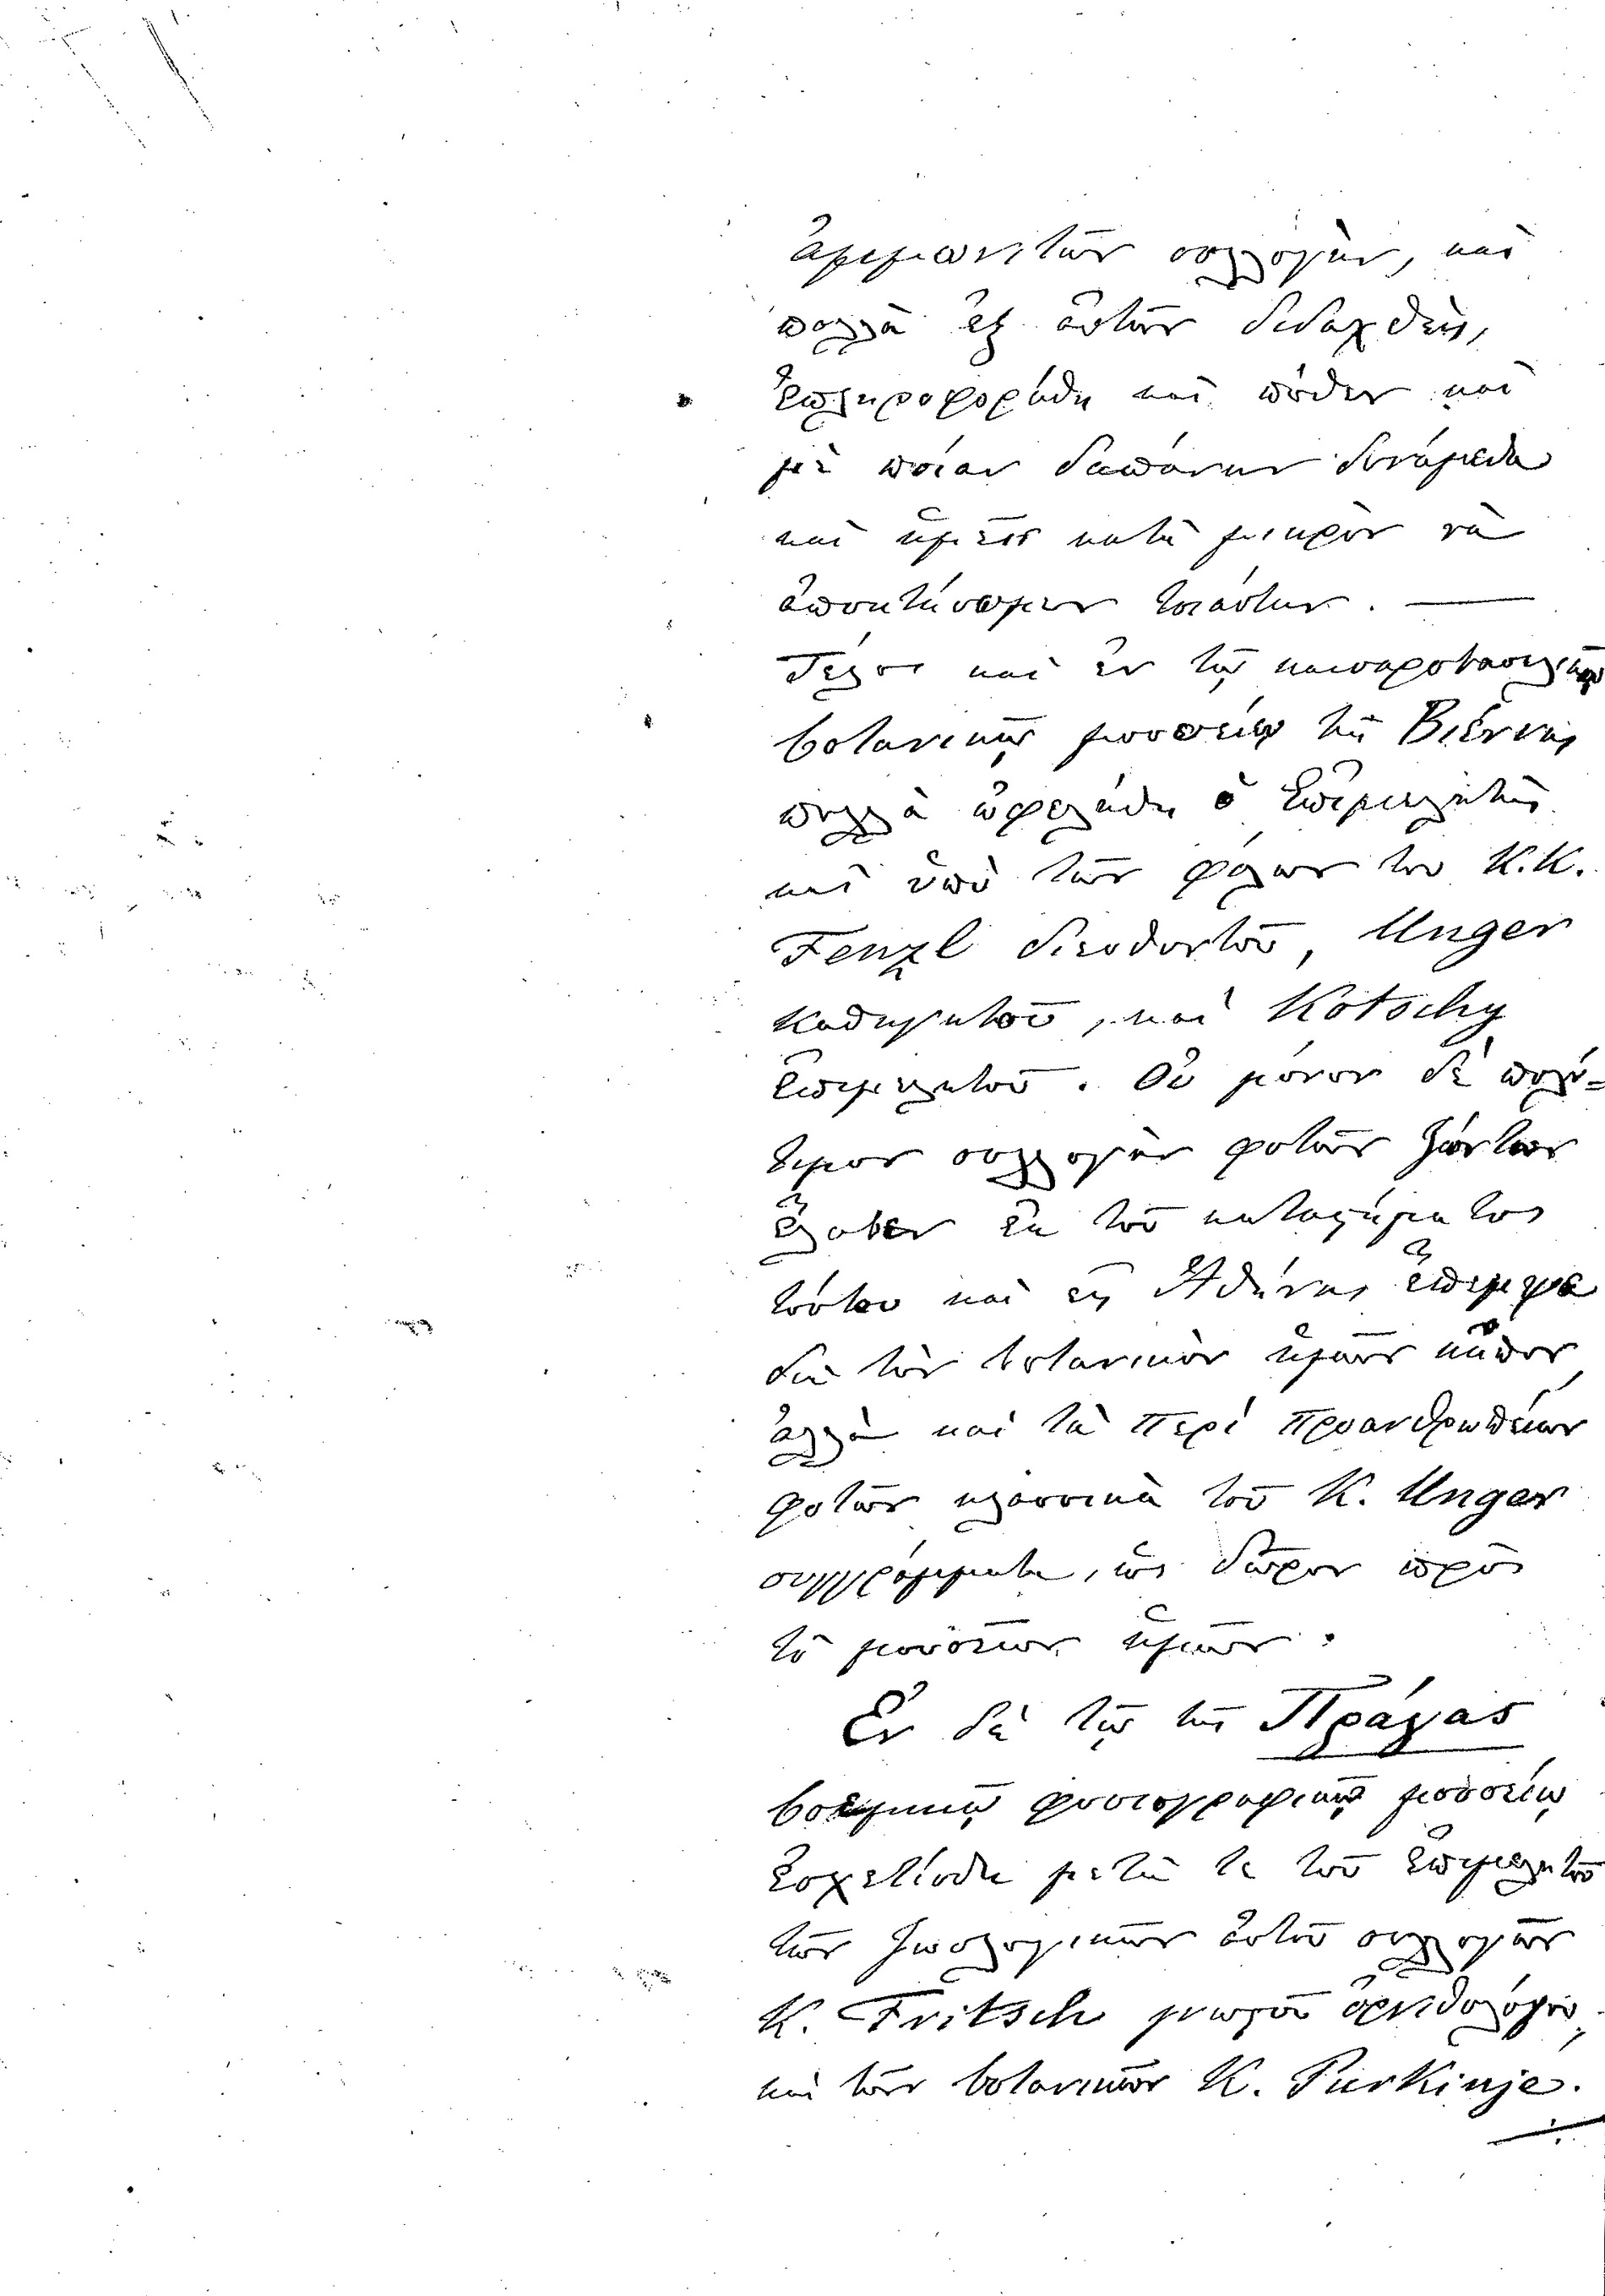 ἀμμωνιτῶν συλλογὴν, καὶ
πολλὰ ἐξ αὐτῶν διδαχθεὶς,
ἐπληροφορήθη καὶ πόθεν καὶ
μὲ ποίαν δαπάνην δυνάμεθα
καὶ ἡμεῖς κατὰ μικρὸν νὰ
ἀποκτήσωμεν τοιαύτην. —
Τέλος καὶ ἐν τῷ καισαροβασιλικῷ
βοτανικῷ μουσείῳ τῆς Βιέννης
πολλὰ ὠφελήθη ὁ Ἐπιμελητὴς
καὶ ὑπὸ τῶν φίλων του Κ.Κ.
Fenzl διευθυντοῦ, Unger
καθηγητοῦ, καὶ Kotschy
ἐπιμελητοῦ. Οὐ μόνον δὲ πολύ-
τιμον συλλογὴν φυτῶν ζώντων
ἔλαβεν ἐκ τοῦ καταστήματος
τούτου καὶ εἰς Ἀθήνας ἔπεμψε
διὰ τὸν βοτανικὸν ἡμῶν κῆπον
ἀλλὰ καὶ τὰ περὶ προανθρωπείων
φυτῶν κλασσικὰ τοῦ Κ. Unger
συγγράμματα, ὡς δῶρον πρὸς
τὸ μουσεῖον ἡμῶν.
Ἐν δὲ τῷ τῆς Πράγας
βοεμικῷ φυσιογραφικῷ μουσείῳ
ἐσχετίσθη μετά τε τοῦ ἐπιμελητοῦ
τῶν ζωολογικῶν αὐτοῦ συλλογῶν
Κ. Fritsch μεγάλου ὀρνιθολόγου,
καὶ τῶν βοτανικῶν Κ. Purkinje.